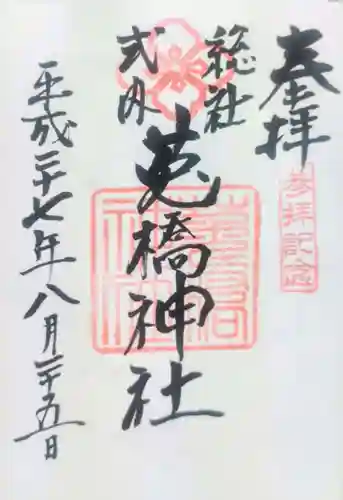 奉拝
参拝記念
総社
式内
莵橋神社
平成二十七年八月二十五日